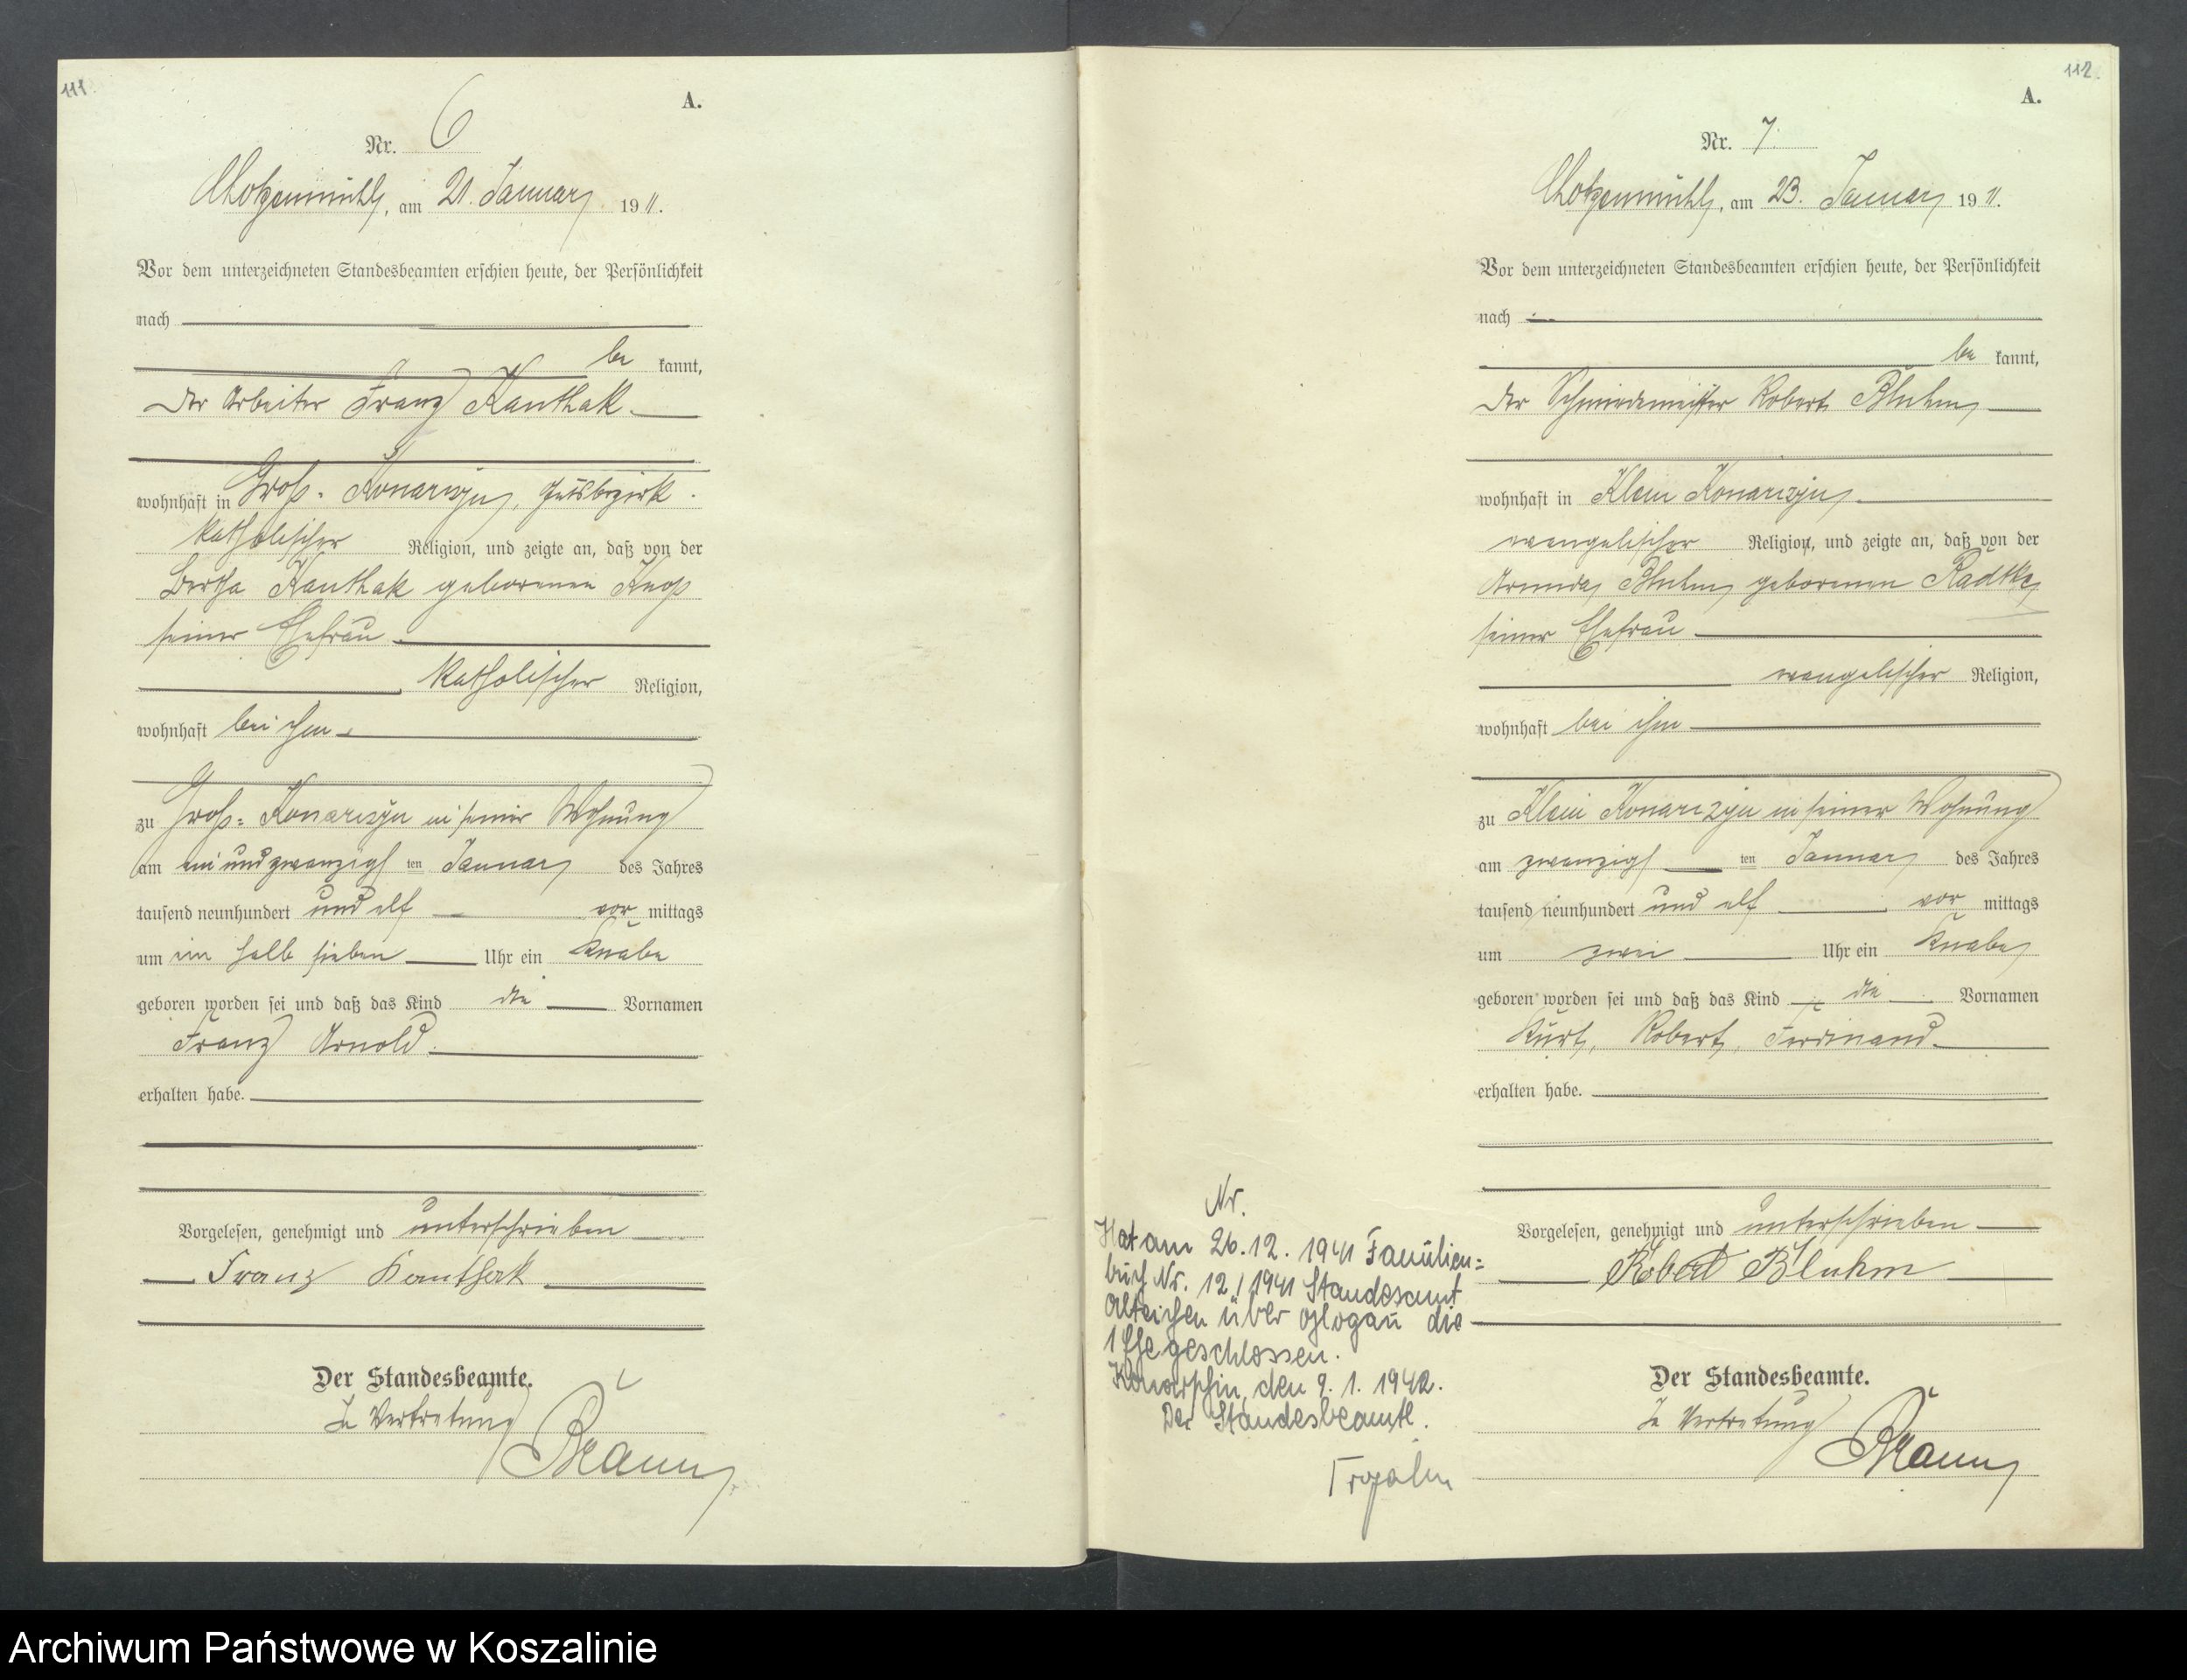 111.
A.
Nr. 6
Chotzenmühl, am 21. Januar 1911.
Vor dem unterzeichneten Standesbeamten erschien heute, der Persönlichkeit
nach
be kannt,
der Arbeiter Franz Kanthak
wohnhaft in Groß-Konarczyn, Gutsbezirk
katholischer Religion, und zeigte an, daß von der
Bertha Kanthak geborenen Knop
seiner Ehefrau
katholischer Religion,
wohnhaft bei ihm
zu Groß-Konarczyn in seiner Wohnung
am ein und zwanzigs ten Januar des Jahres
tausend neunhundert und elf vor mittags
um ein halb sieben Uhr ein Knabe
geboren worden sei und daß das Kind die Vornamen
Franz Arnold.
erhalten habe.
Vorgelesen, genehmigt und unterschrieben
Franz Kanthak
Der Standesbeamte.
In Vertretung
Braun
112.
A.
Nr. 7.
Chotzenmühl, am 23. Januar 1911.
Vor dem unterzeichneten Standesbeamten erschien heute, der Persönlichkeit
nach
be kannt,
der Schmiedemeister Robert Bluhm
wohnhaft in Klein Konarczyn
evangelischer Religion, und zeigte an, daß von der
Bluhm geborenen Radtke
seiner Ehefrau
evangelischer Religion,
wohnhaft bei ihm
zu Klein Konarczyn in seiner Wohnung
am zwanzigs ten Januar des Jahres
tausend neunhundert und elf vor mittags
um zwei Uhr ein Knabe
geboren worden sei und daß das Kind die Vornamen
Kurt, Robert, Ferdinand
erhalten habe.
Vorgelesen, genehmigt und unterschrieben
Robert Bluhm
Der Standesbeamte.
In Vertretung
Braun
Nr.
Hat am 26.12.1941 Familien=
buch Nr. 12/1941 Standesamt
Alteichen über Glogau die
1 Ehe geschlossen.
den 9.1.1942.
Der Standesbeamte.
Archiwum Państwowe w Koszalinie